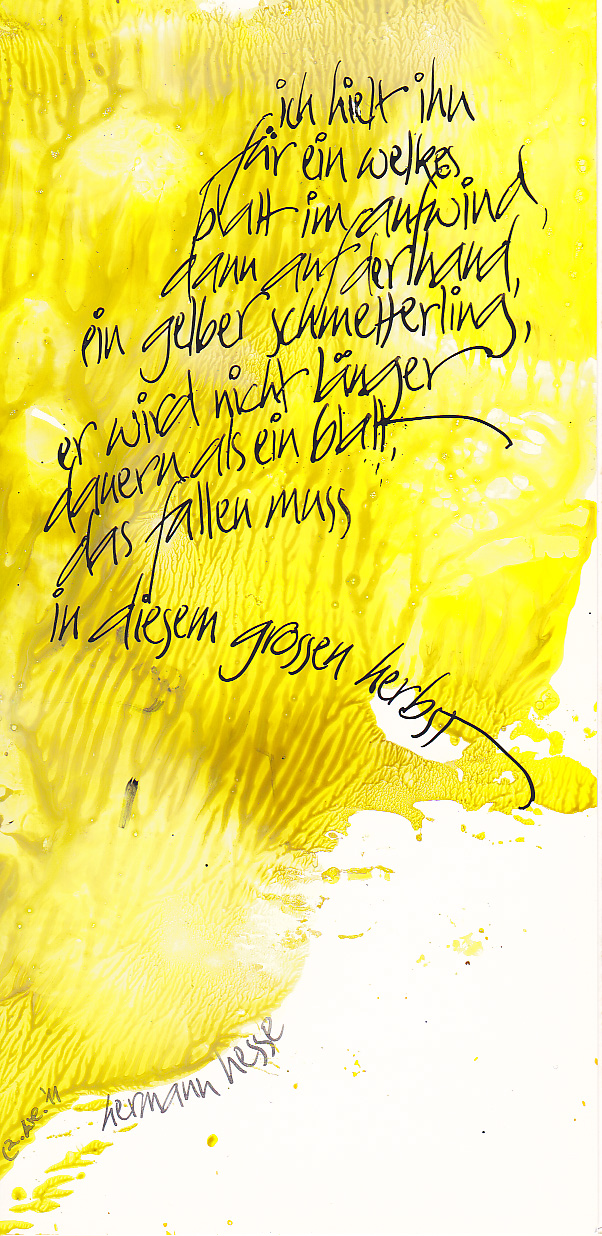 ich hielt ihn
für ein welkes
blatt im aufwind,
dann auf der hand,
ein gelber schmetterling,
er wird nicht länger
dauern als ein blatt,
das fallen muss
in diesem grossen herbst
hermann hesse